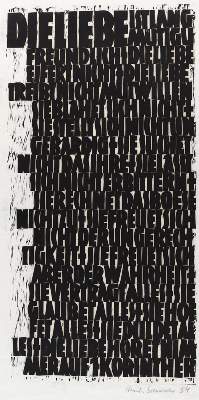 DIE LIEBE IST LANG
FREUNDLICH DIE LIEBE
EIFERT NICHT DIE LIEBE
TREIBT NICHT MUTWILLEN
SICH NICHT
GEBÄRDIG SIE SUCHET
NICHT DAS IHRE SIE
SICH NICHT ERBITTERN
SIE RECHNET DAS BÖSE
NICHT ZU SIE FREUET SICH
NICHT DER UNGERECH
TIGKEIT SIE FREUET SICH
ABER DER WAHRHEIT
SIE VERTRÄGT ALLES SIE
GLAUBET ALLES SIE HOF
FET ALLES SIE DULDET AL
LES DIE LIEBE HÖRET NIM
MER AUF 1 KORINTHER